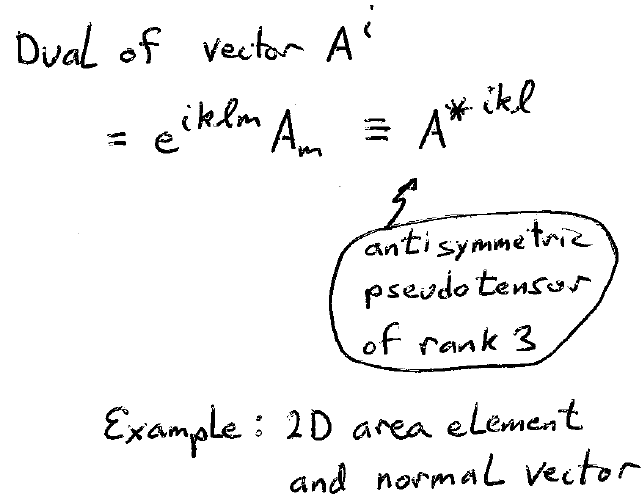 Dual of vector Aⁱ
= eⁱᵏˡᵐ Aₘ ≡ A*ⁱᵏˡ
antisymmetric
pseudotensor
of rank 3
Example: 2D area element
and normal vector